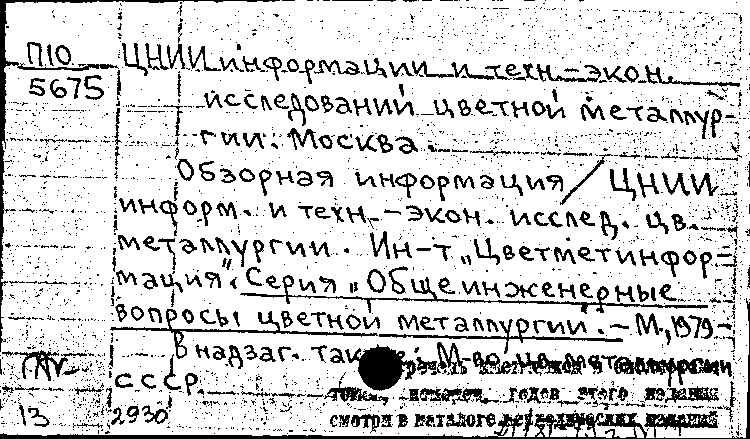 П10 ЦНИИ информации и техн.-экон.
5675 исследований цветной металлур-
гии. Москва.
Обзорная информация / ЦНИИ
информ. и техн.-экон. исслед. цв.
металлургии. Ин-т „Цветметинфор=
мация". Серия „Общеинженерные
вопросы цветной металлургии". - М., 1979-
В надзаг. также: М-во цв. металлургии
СССР.
годов этого издания
13 2930 смотри в каталоге